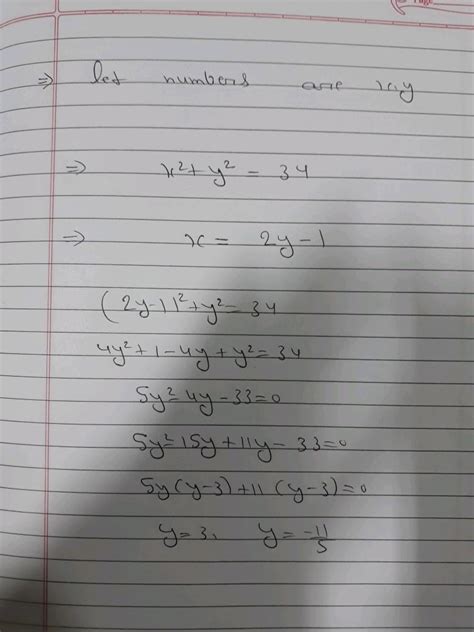 ⇒ let numbers are x,y
⇒ x² + y² = 34
⇒ x = 2y - 1
(2y-1)² + y² = 34
4y² + 1 - 4y + y² = 34
5y² - 4y - 33 = 0
5y² - 15y + 11y - 33 = 0
5y (y-3) + 11 (y-3) = 0
y = 3, y = -11/5